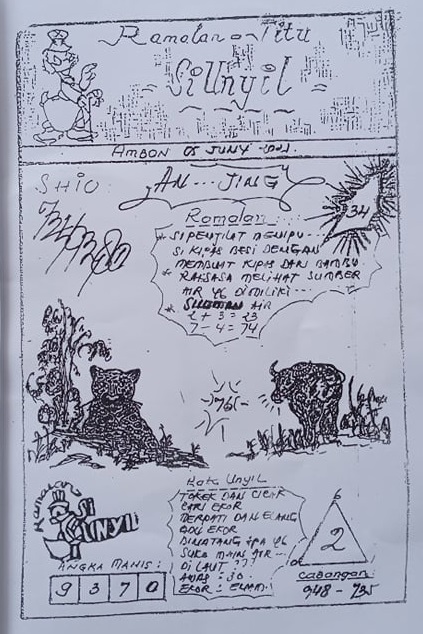 Ramalan - Jitu
Si Unyil
AMBON 05 JUNY
SHIO : AN... JING
34
Ramalan
SI PENTILAT MENIPU...
SI KIPAS BESI DENGAN
MEMBUAT KIPAS DARI BAMBU
RAKSASA MELIHAT SUMBER
AIR YG DIMILIKI...
SILUMAN AIR
2 + 3 = 23
7 - 4 = 74
76
Kata Unyil
TOKEK DAN CICAK
CARI EKOR
MERPATI DAN ELANG
ADU EKOR
BINATANG APA YG
SUKA MAIN AIR
DI LAUT ???
30
EKOR :
Ramalan
SI
UNYIL
ANGKA MANIS :
9 3 7 0
6
2
CABANGAN
948 - 735